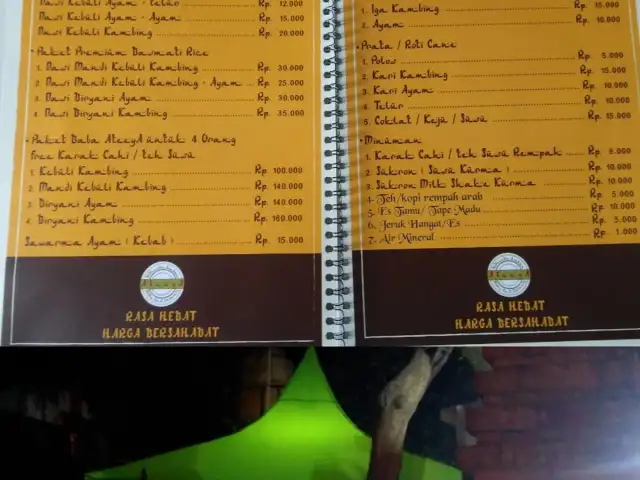 Nasi Kebuli Ayam - Telur Rp. 12.000
Nasi Kebuli Ayam - Ayam Rp. 15.000
Nasi Kebuli Kambing Rp. 20.000
• Paket Premium Basmati Rice
1. Nasi Mandi Kebuli Kambing Rp. 30.000
2. Nasi Mandi Kebuli Kambing - Ayam Rp. 25.000
3. Nasi Biryani Ayam Rp. 30.000
4. Nasi Biryani Kambing Rp. 35.000
• Paket Baba AteeyA untuk 4 Orang
Free Karak Cahi / teh Susu
1. Kebuli Kambing Rp. 100.000
2. Mandi Kebuli Kambing Rp. 140.000
3. Biryani Ayam Rp. 140.000
4. Biryani Kambing Rp. 160.000
Sawarma Ayam ( Kebab ) Rp. 15.000
AteeyA
RASA HEBAT
HARGA BERSAHABAT
1. Iga Kambing Rp. 15.000
2. Ayam Rp. 10.000
• Prata / Roti Cane
1. Polos Rp. 5.000
2. Kari Kambing Rp. 15.000
3. Kari Ayam Rp. 10.000
4. Telur Rp. 10.000
5. Coklat / Keju / Susu Rp. 15.000
• Minuman
1. Karak Cahi / teh Susu Rempah Rp. 8.000
2. Sukron ( Susu Kurma ) Rp. 10.000
3. Sukron Milk Shake Kurma Rp. 10.000
4. Teh/kopi rempah arab Rp. 5.000
5. Es Tamu/ Tape Madu Rp. 10.000
6. Jeruk Hangat/Es Rp. 5.000
7. Air Mineral Rp. 1.000
AteeyA
RASA HEBAT
HARGA BERSAHABAT